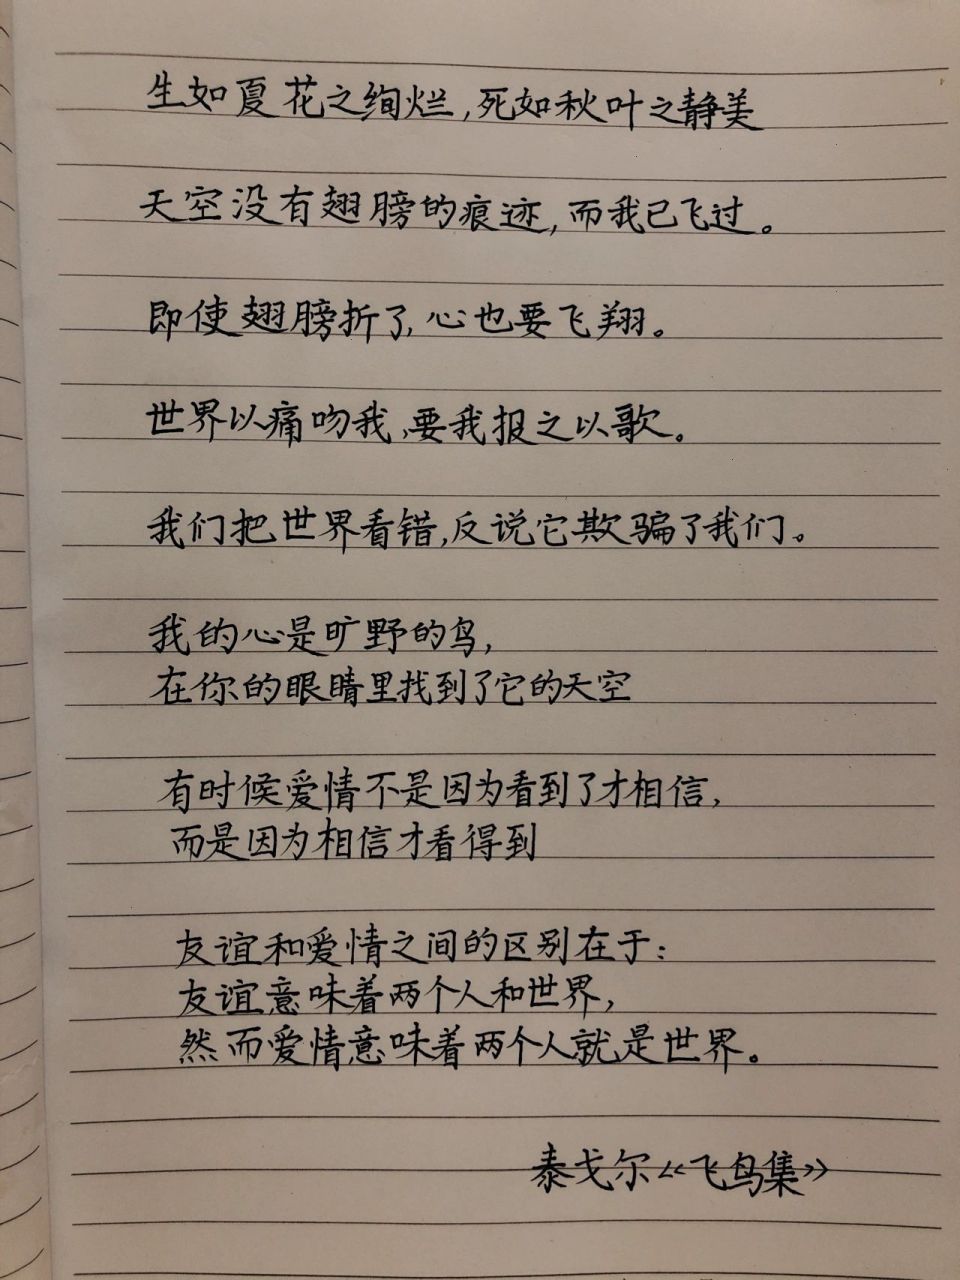 生如夏花之绚烂,死如秋叶之静美
天空没有翅膀的痕迹,而我已飞过。
即使翅膀折了,心也要飞翔。
世界以痛吻我,要我报之以歌。
我们把世界看错,反说它欺骗了我们。
我的心是旷野的鸟,
在你的眼睛里找到了它的天空
有时候爱情不是因为看到了才相信,
而是因为相信才看得到
友谊和爱情之间的区别在于:
友谊意味着两个人和世界,
然而爱情意味着两个人就是世界。
泰戈尔《飞鸟集》